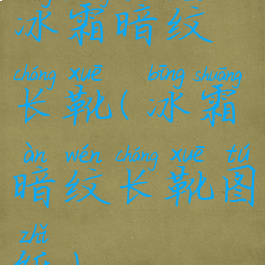 冰霜暗纹
cháng xuē bīng shuāng
长靴(冰霜
àn wén cháng xuē tú
暗纹长靴图
zhǐ
纸)